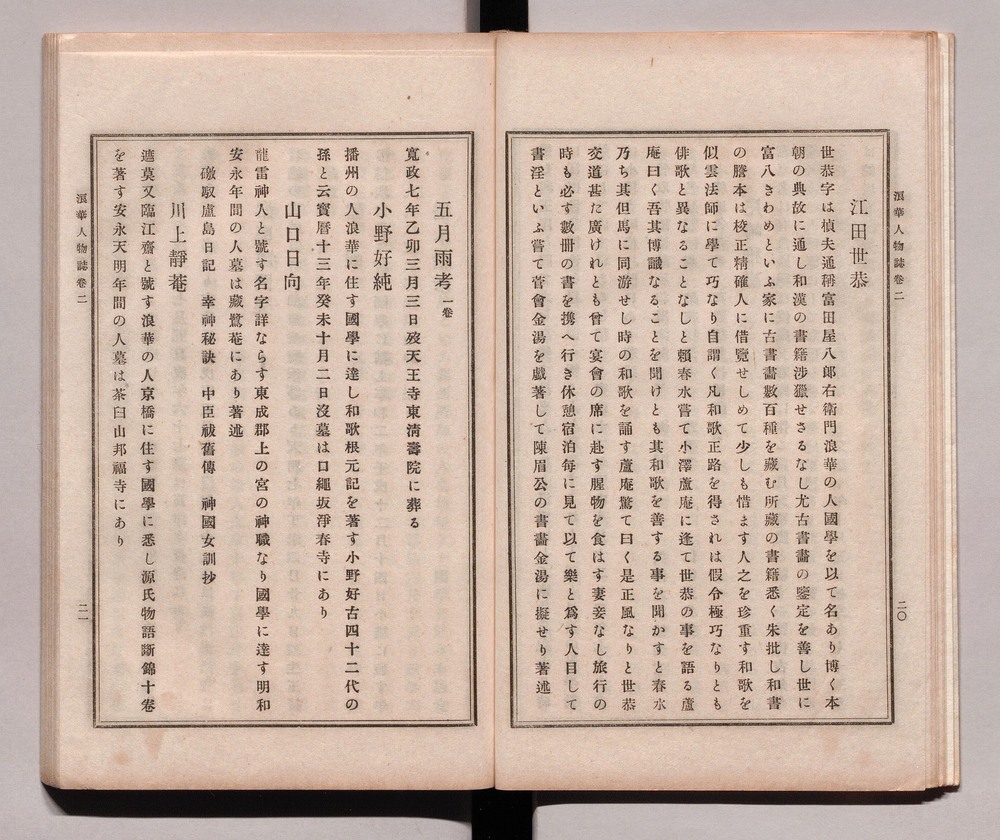 浪華人物誌卷二
二〇
江田世恭
世恭字は楨夫通稱富田屋八郎右衛門浪華の人國學を以て名あり博く本
朝の典故に通し和漢の書籍涉獵せさるなし尤古書畫の鑒定を善し世に
富八きわめといふ家に古書畫數百種を藏む所藏の書籍悉く朱批し和書
の謄本は校正精確人に借覽せしめて少しも惜ます人之を珍重す和歌を
似雲法師に學て巧なり自謂く凡和歌正路を得されは假令極巧なりとも
俳歌と異なることなしと賴春水嘗て小澤蘆庵に逢て世恭の事を語る蘆
庵曰く吾其博識なることを聞けとも其和歌を善する事を聞かすと春水
乃ち其但馬に同游せし時の和歌を誦す蘆庵驚て曰く是正風なりと世恭
交道甚た廣けれとも曾て宴會の席に赴す腥物を食はす妻妾なし旅行の
時も必す數冊の書を携へ行き休憩宿泊每に見て以て樂と爲す人目して
書淫といふ嘗て菅會金湯を戲著して陳眉公の書畫金湯に擬せり著述
五月雨考 一卷
寬政七年乙卯三月三日歿天王寺東淸壽院に葬る
小野好純
播州の人浪華に住す國學に達し和歌根元記を著す小野好古四十二代の
孫と云寳曆十三年癸未十月二日沒墓は口繩坂淨春寺にあり
山口日向
龍雷神人と號す名字詳ならす東成郡上の宮の神職なり國學に達す明和
安永年間の人墓は藏鷺菴にあり著述
磤馭盧島日記 幸神秘訣 中臣祓舊傳 神國女訓抄
川上靜菴
遮莫又臨江齋と號す浪華の人京橋に住す國學に悉し源氏物語斷錦十卷
を著す安永天明年間の人墓は茶臼山邦福寺にあり
浪華人物誌卷二
二一